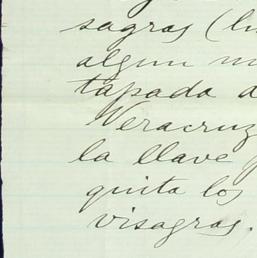 sagras (
algun
tapada
Veracruz
la llave
quita los
visagras.